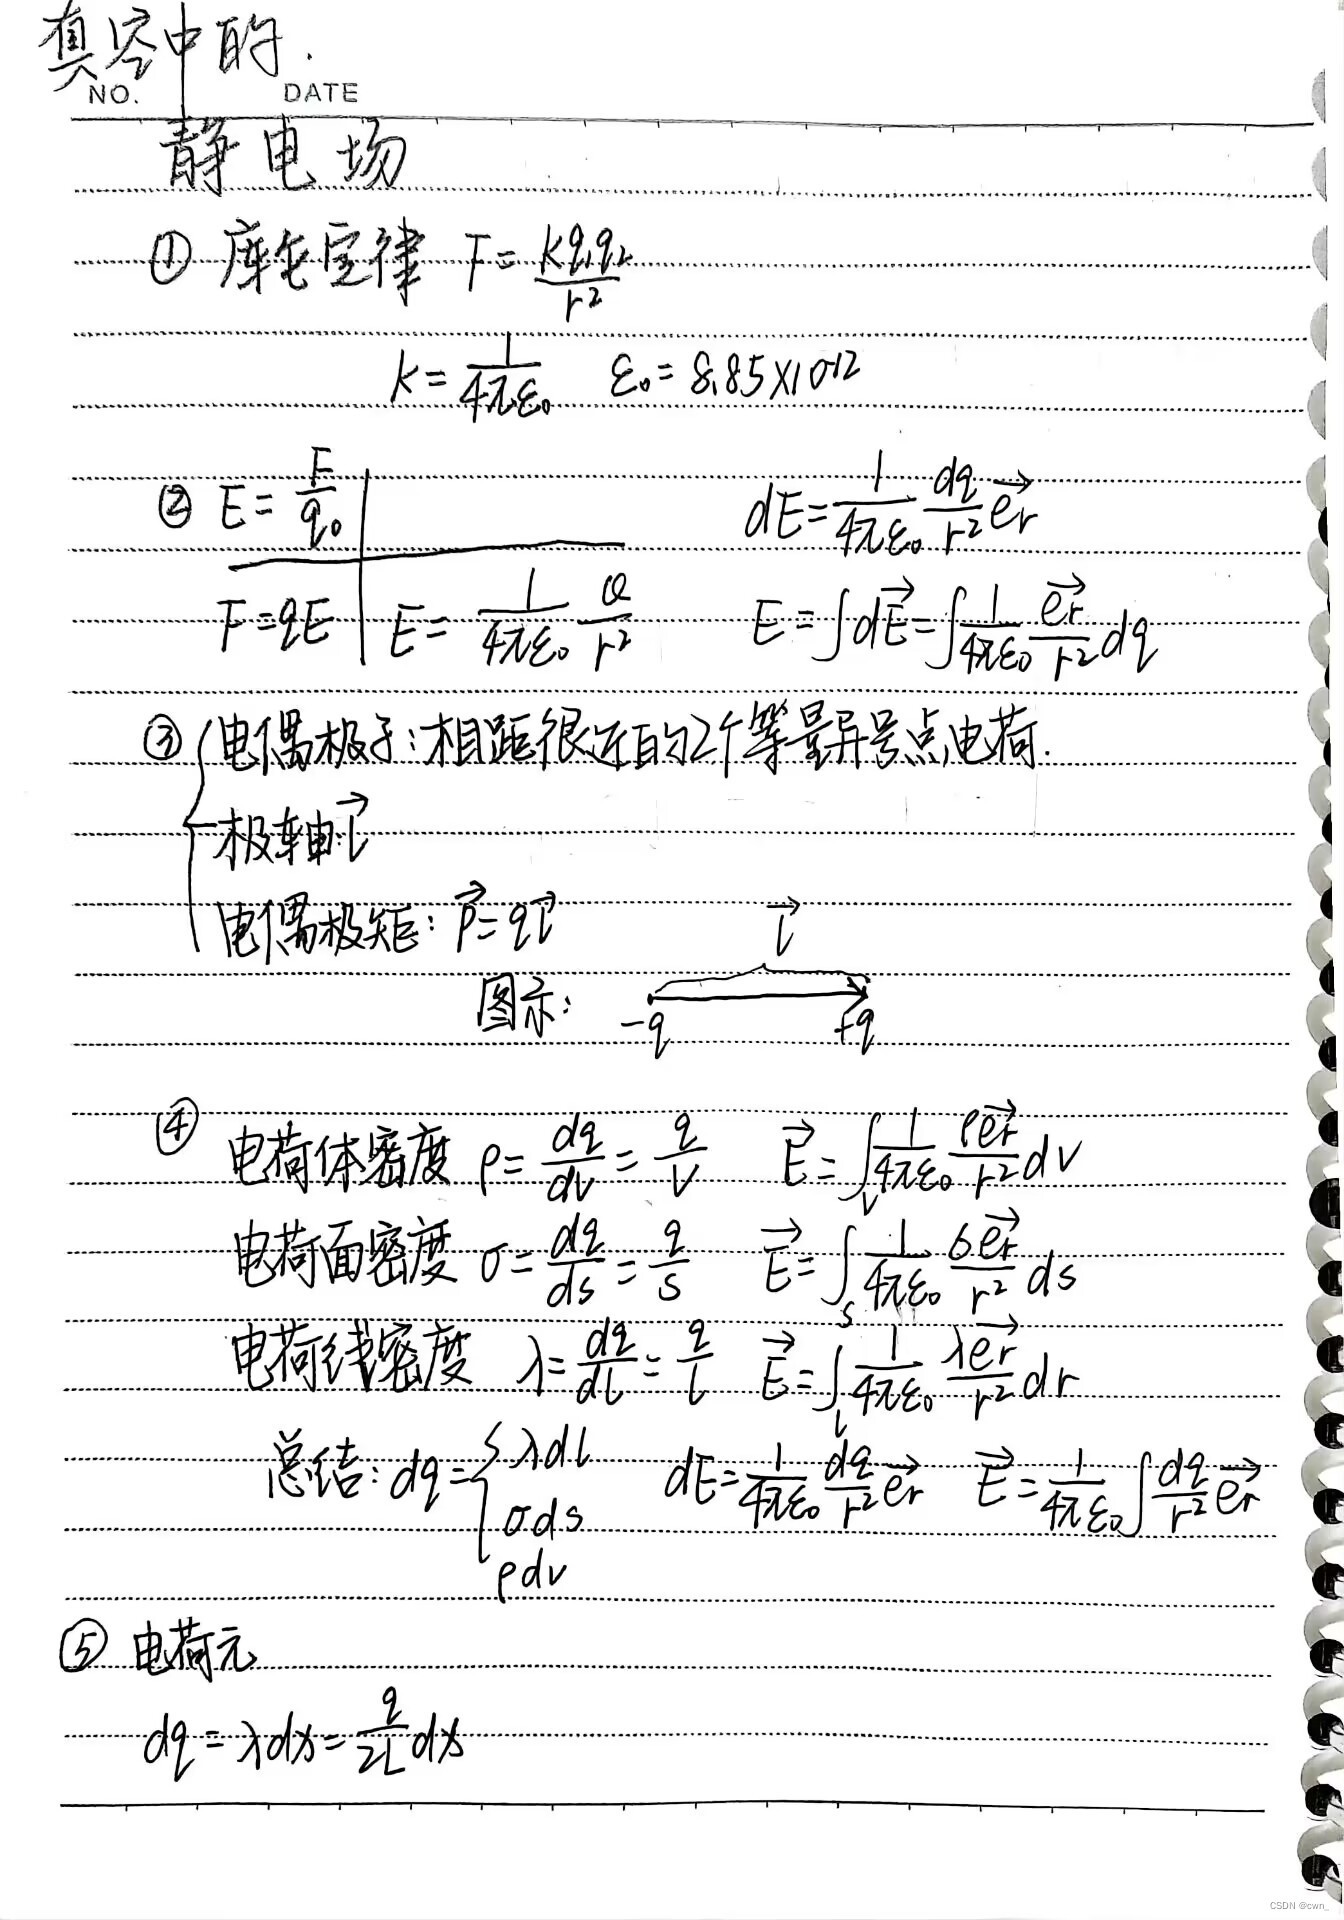 真空中的.
NO. DATE
静电场
① 库仑定律 F = kq₁q₂/r²
k = 1/4πε₀ ε₀ = 8.85×10-12
② E = F/q₀ dE = 1/4πε₀ dq/r² e⃗r
F = qE E = 1/4πε₀ Q/r² E = ∫dE⃗ = ∫1/4πε₀ e⃗r/r² dq
③ { 电偶极子:相距很近的2个等量异号点电荷.
极轴:l⃗
电偶极矩: P⃗ = ql⃗ l⃗
图示: -q +q
④ 电荷体密度 ρ = dq/dv = q/V E⃗ = ∫v 1/4πε₀ ρe⃗r/r² dv
电荷面密度 σ = dq/ds = q/s E⃗ = ∫s 1/4πε₀ σe⃗r/r² ds
电荷线密度 λ = dq/dl = q/l E⃗ = ∫l 1/4πε₀ λe⃗r/r² dr
总结: dq = { λdl dE = 1/4πε₀ dq/r² e⃗r E⃗ = 1/4πε₀ ∫dq/r² e⃗r
σds
ρdv
⑤ 电荷元
dq = λdx = q/2L dx
CSDN @cwn_